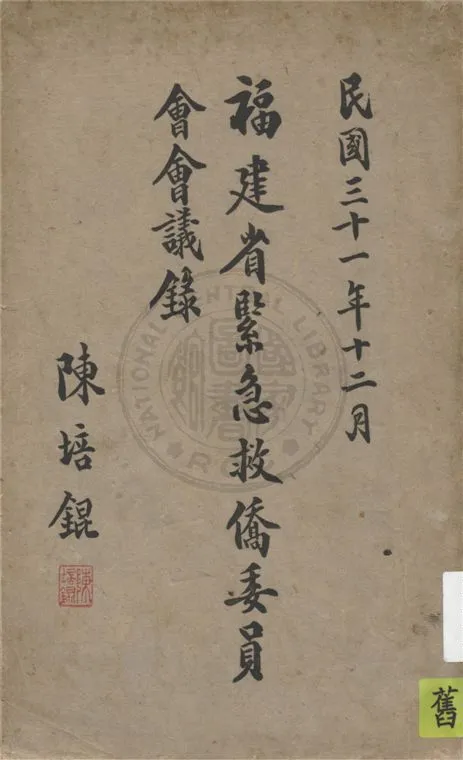 民國三十一年十二月
福建省緊急救僑委員
會會議錄
陳培錕
陳培錕
舊
NATIONAL CENTRAL LIBRARY